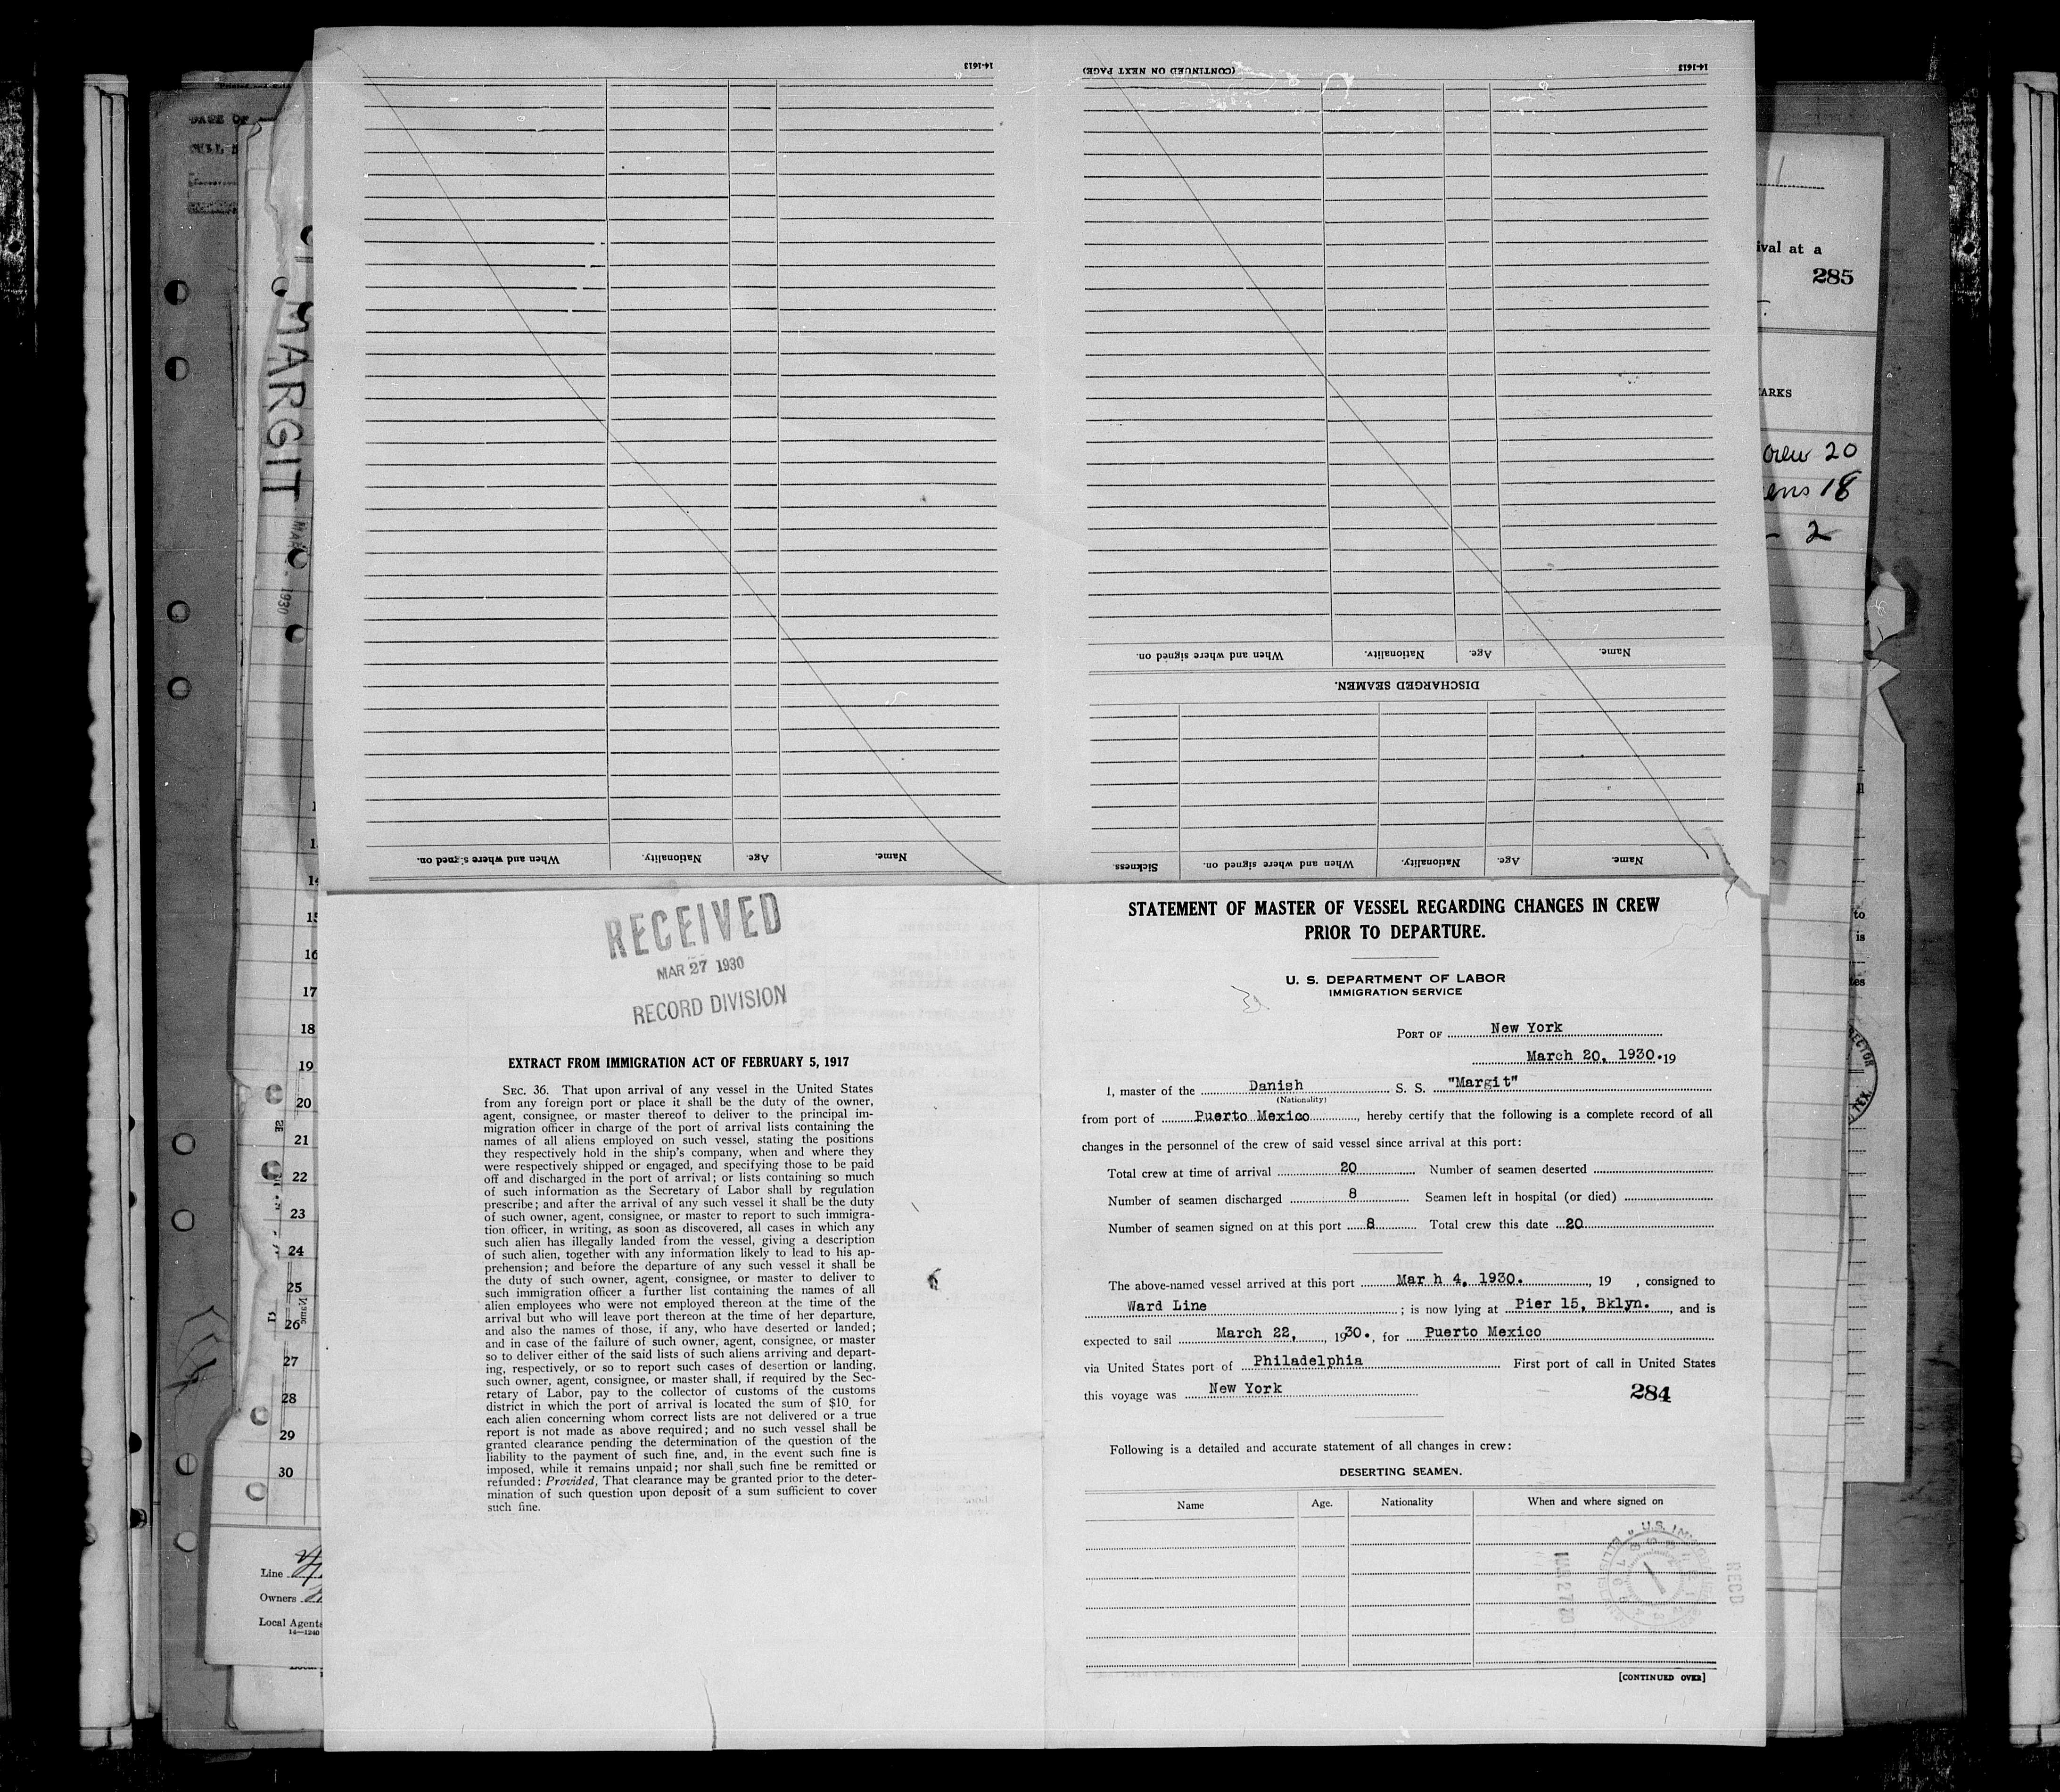 14-1613
(CONTINUED ON NEXT PAGE)
14-1613
When and where signed on.
Nationality.
Age.
Name.
DISCHARGED SEAMEN.
Sickness.
When and where signed on.
Nationality.
Age.
Name.
When and where signed on.
Nationality.
Age.
Name.
MARGIT
1930
ival at a
285
ARKS
crew 20
ens 18
- 2
RECEIVED
MAR 27 1930
RECORD DIVISION
EXTRACT FROM IMMIGRATION ACT OF FEBRUARY 5, 1917
SEC. 36. That upon arrival of any vessel in the United States
from any foreign port or place it shall be the duty of the owner,
agent, consignee, or master thereof to deliver to the principal im-
migration officer in charge of the port of arrival lists containing the
names of all aliens employed on such vessel, stating the positions
they respectively hold in the ship's company, when and where they
were respectively shipped or engaged, and specifying those to be paid
off and discharged in the port of arrival; or lists containing so much
of such information as the Secretary of Labor shall by regulation
prescribe; and after the arrival of any such vessel it shall be the duty
of such owner, agent, consignee, or master to report to such immigra-
tion officer, in writing, as soon as discovered, all cases in which any
such alien has illegally landed from the vessel, giving a description
of such alien, together with any information likely to lead to his ap-
prehension; and before the departure of any such vessel it shall be
the duty of such owner, agent, consignee, or master to deliver to
such immigration officer a further list containing the names of all
alien employees who were not employed thereon at the time of the
arrival but who will leave port thereon at the time of her departure,
and also the names of those, if any, who have deserted or landed;
and in case of the failure of such owner, agent, consignee, or master
so to deliver either of the said lists of such aliens arriving and depart-
ing, respectively, or so to report such cases of desertion or landing,
such owner, agent, consignee, or master shall, if required by the Sec-
retary of Labor, pay to the collector of customs of the customs
district in which the port of arrival is located the sum of $10 for
each alien concerning whom correct lists are not delivered or a true
report is not made as above required; and no such vessel shall be
granted clearance pending the determination of the question of the
liability to the payment of such fine, and, in the event such fine is
imposed, while it remains unpaid; nor shall such fine be remitted or
refunded: Provided, That clearance may be granted prior to the deter-
mination of such question upon deposit of a sum sufficient to cover
such fine.
STATEMENT OF MASTER OF VESSEL REGARDING CHANGES IN CREW
PRIOR TO DEPARTURE.
U. S. DEPARTMENT OF LABOR
IMMIGRATION SERVICE
PORT OF New York
March 20, 1930. 19
I, master of the Danish S. S. "Margit"
(Nationality)
from port of Puerto Mexico, hereby certify that the following is a complete record of all
changes in the personnel of the crew of said vessel since arrival at this port:
Total crew at time of arrival 20 Number of seamen deserted
Number of seamen discharged 8 Seamen left in hospital (or died)
Number of seamen signed on at this port 8 Total crew this date 20
The above-named vessel arrived at this port Mar h 4, 1930. , 19 , consigned to
Ward Line ; is now lying at Pier 15, Bklyn. , and is
expected to sail March 22, , 1930. , for Puerto Mexico
via United States port of Philadelphia First port of call in United States
this voyage was New York
284
Following is a detailed and accurate statement of all changes in crew:
DESERTING SEAMEN.
Name Age. Nationality When and where signed on
RECD
[CONTINUED OVER]
14
15
16
17
18
19
20
21
22
23
24
25
26
27
28
29
30
Line
Owners
Local Agents
14—1240